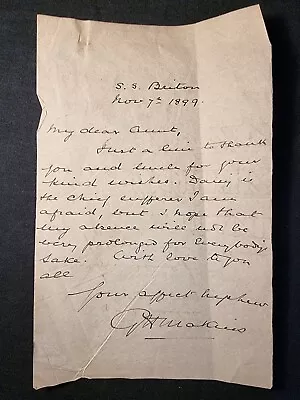 S.S. Briton
Nov 7th 1899.
My dear Aunt,
Just a line to thank
you and uncle for your
kind wishes. Daisy is
the chief sufferer I am
afraid, but I hope that
my absence will not be
very prolonged for Everybody's
sake. With love to you
all
Your affect nephew
GHMakins